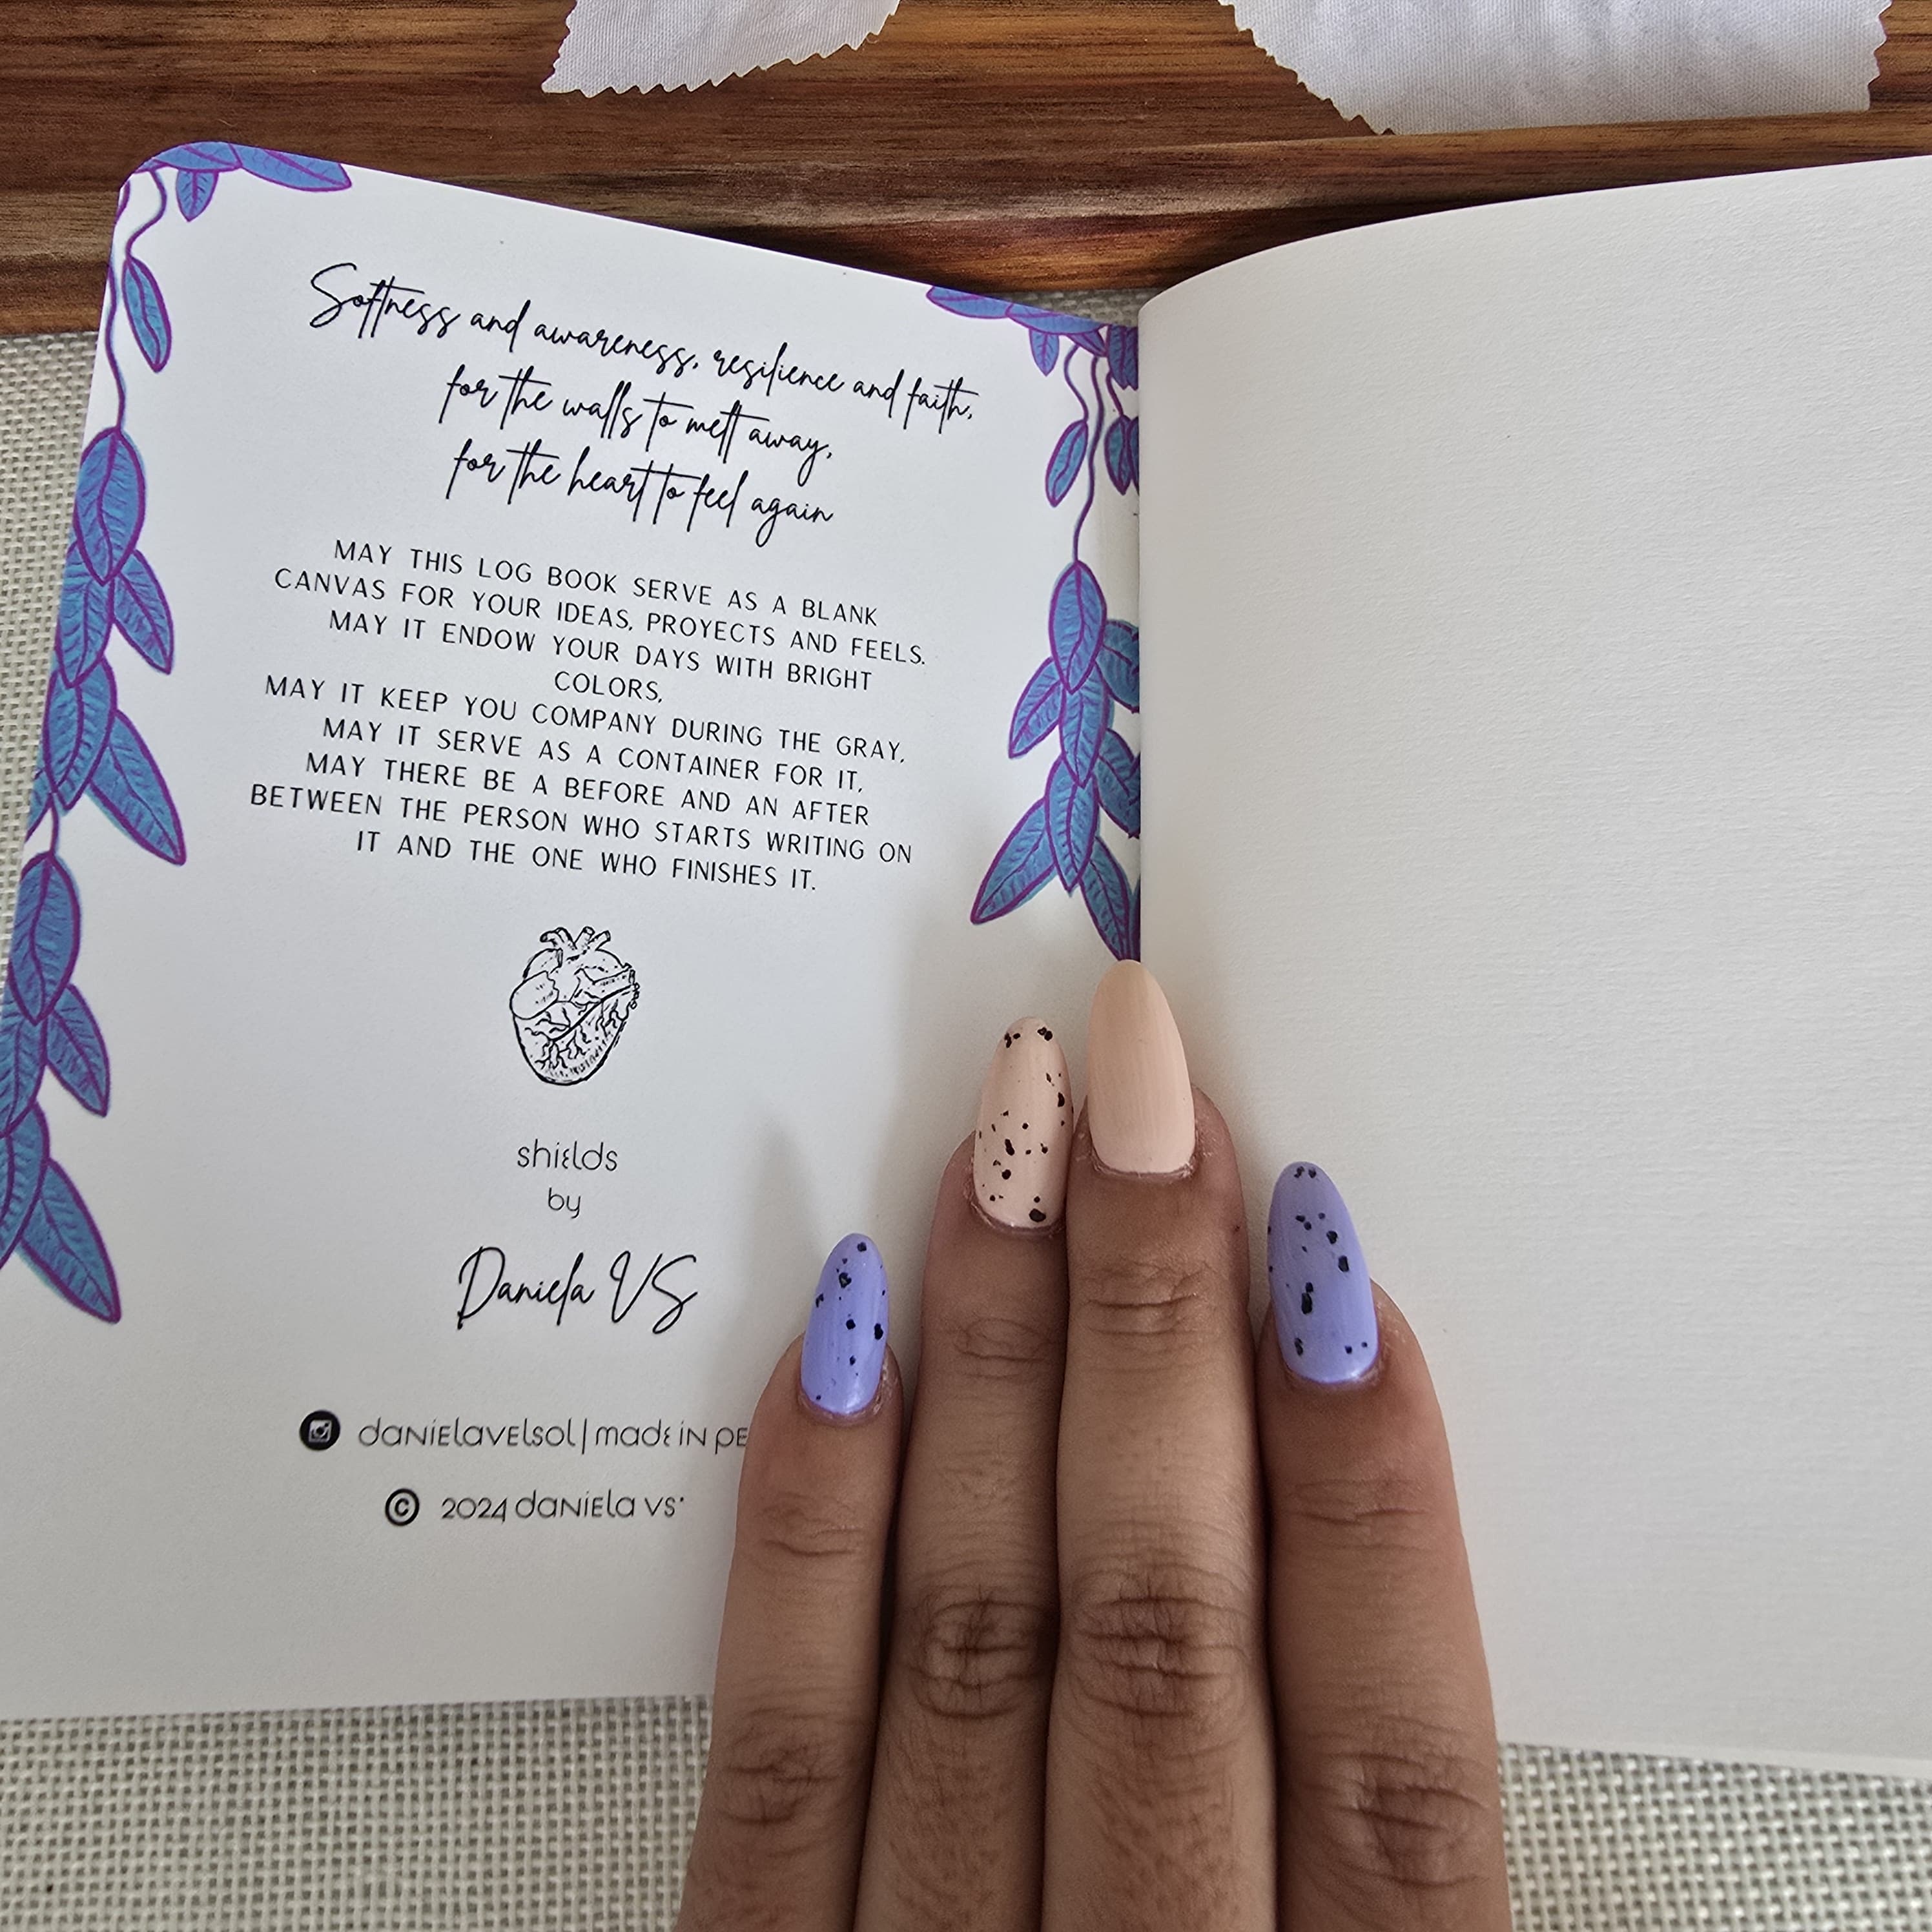 Softness and awareness, resilience and faith,
for the walls to melt away,
for the heart to feel again
MAY THIS LOG BOOK SERVE AS A BLANK
CANVAS FOR YOUR IDEAS, PROYECTS AND FEELS.
MAY IT ENDOW YOUR DAYS WITH BRIGHT
COLORS,
MAY IT KEEP YOU COMPANY DURING THE GRAY,
MAY IT SERVE AS A CONTAINER FOR IT,
MAY THERE BE A BEFORE AND AN AFTER
BETWEEN THE PERSON WHO STARTS WRITING ON
IT AND THE ONE WHO FINISHES IT.
shields
by
Daniela VS
danielavelsol | made in
© 2024 daniela vs